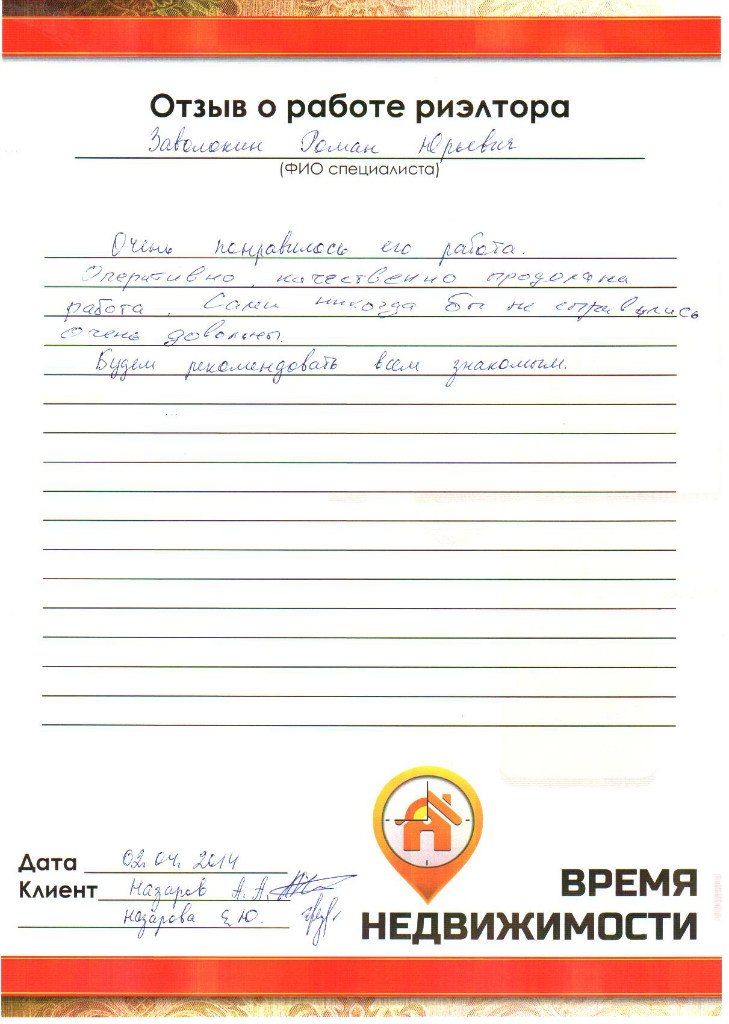 Отзыв о работе риэлтора
Заволокин Роман Юрьевич
(ФИО специалиста)
Очень понравилось его работа.
Оперативно, качественно продолжена
работа. Сами никогда бы не справились
Очень довольны.
Будем рекомендовать всем знакомым.
Дата 02.04.2014
Клиент Назаров А.А.
Назарова Е.Ю.
ВРЕМЯ
НЕДВИЖИМОСТИ